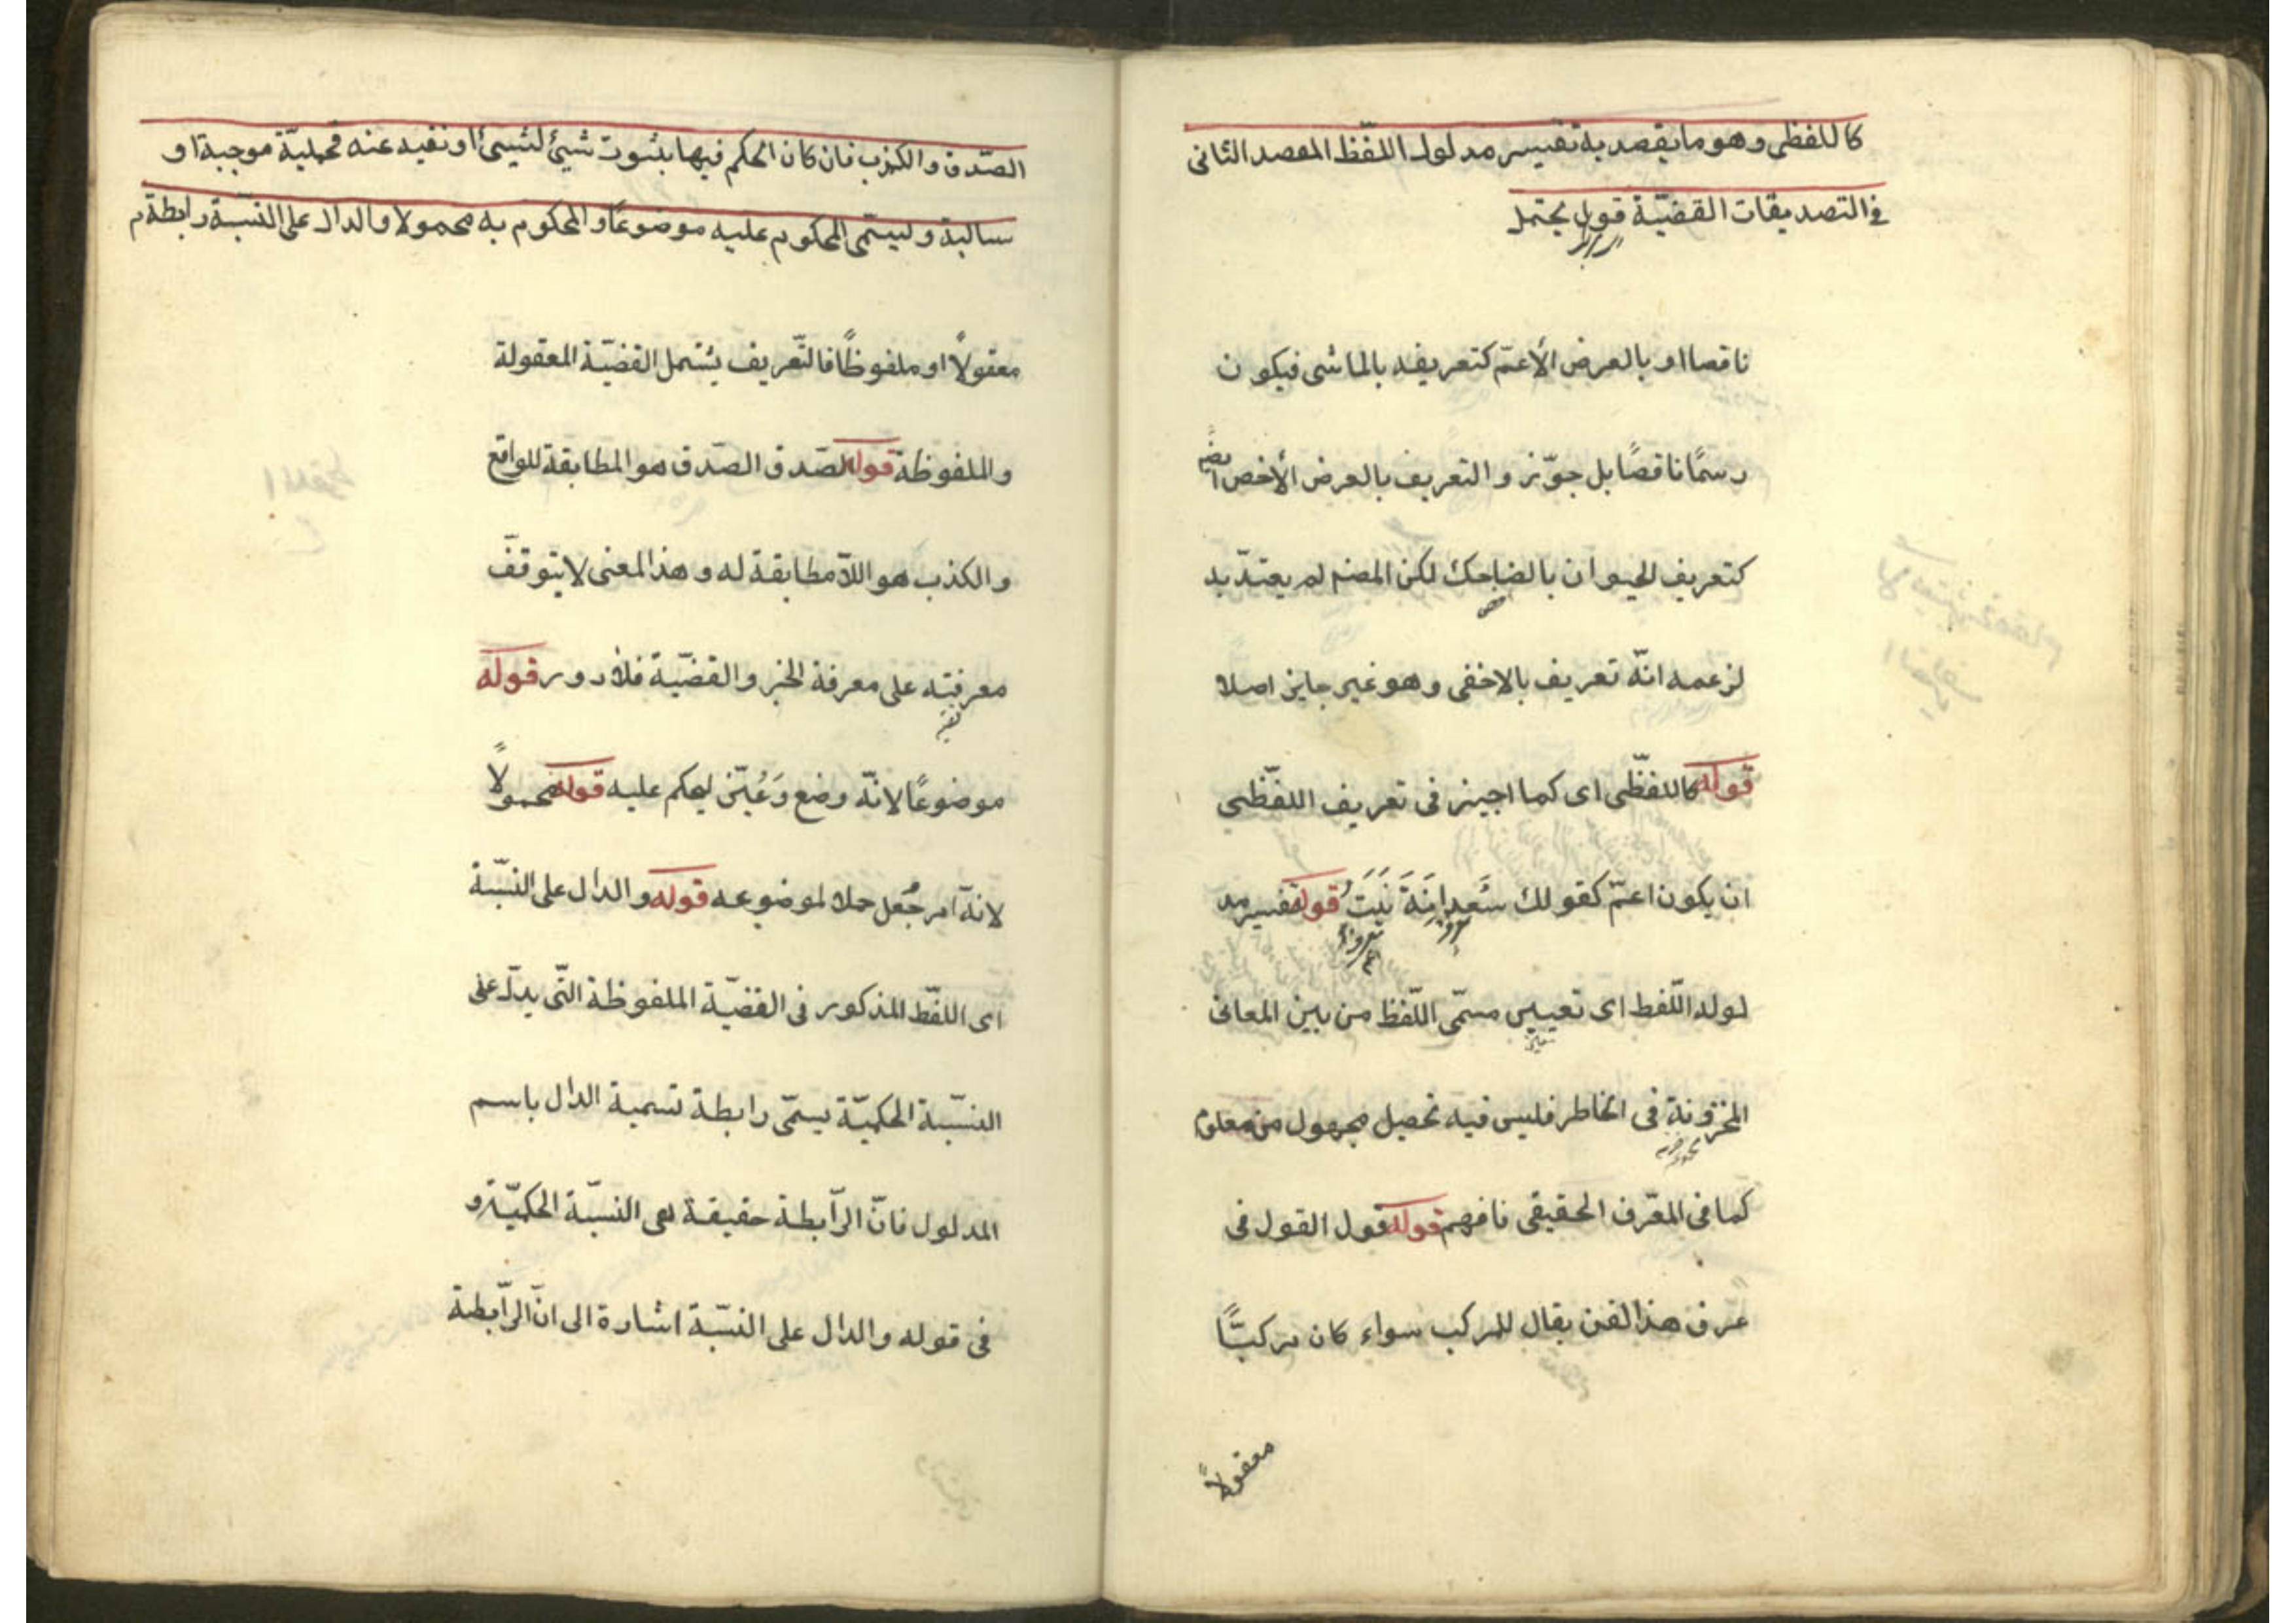 كاللفظى وهو ما يقصد به تفسير مدلول اللّفظ المقصد الثانى
فى التصديقات القضيّة قول يحتمل
ناقصا او بالعرض الأعمّ كتعريفه بالماشى فيكون
رسمًا ناقصًا بل جوّزوا التعريف بالعرض الأخص ايضًا
كتعريف الحيوان بالضاحك لكن المصنف لم يعتدّ به
لزعمه انّه تعريف بالاخفى وهو غير جايز اصلا
قوله كاللفظّى اى كما اجيز فى تعريف اللفظّى
ان يكون اعمّ كقولك سَعدانَةَ نَبَتُ قوله تفسير مد
لوله اللّفط اى تعيين مسمّى اللّفظ من بين المعانى
المخزونة فى الخاطر فليس فيه تحصيل مجهول من معلوم
كما فى المعّرف الحقيقى فافهم قوله قول القول فى
عرف هذا الفن يقال للمركب سواء كان مركبًّا
معقولاً
الصّدق والكذب فان كان الحكم فيها بثبوت شئ لشيئ او نفيه عنه فحمليّة موجبة او
سالبة ويسمّى المحكوم عليه موضوعًا والمحكوم به محمولا والدال على النسّبة رابطة
معقولاً او ملفوظًا فالتّعريف يشمل القضيّة المعقولة
والملفوظة قوله الصّدق الصّدق هو المطابقة للواقع
والكذب هو اللّا مطابقة له وهذا المعنى لا يتوقفّ
معرفته على معرفة الخبر والقضيّة فلا دور قوله
موضوعًا لانّه وضع وَعُيّن ليحكم عليه قوله محمولاً
لانه امر جُعل حملا لموضوعه قوله والدال على النسّبة
اى اللفّظ المذكور فى القضيّة الملفوظة التّى يدلّ على
النسّبة الحكميّة يسمّى رابطة تسمية الدال باسم
المدلول فانّ الرّابطة حقيقة هى النسبّة الحكميّة و
فى قوله والدال على النسّبة اشارة الى انّ الرّابطة